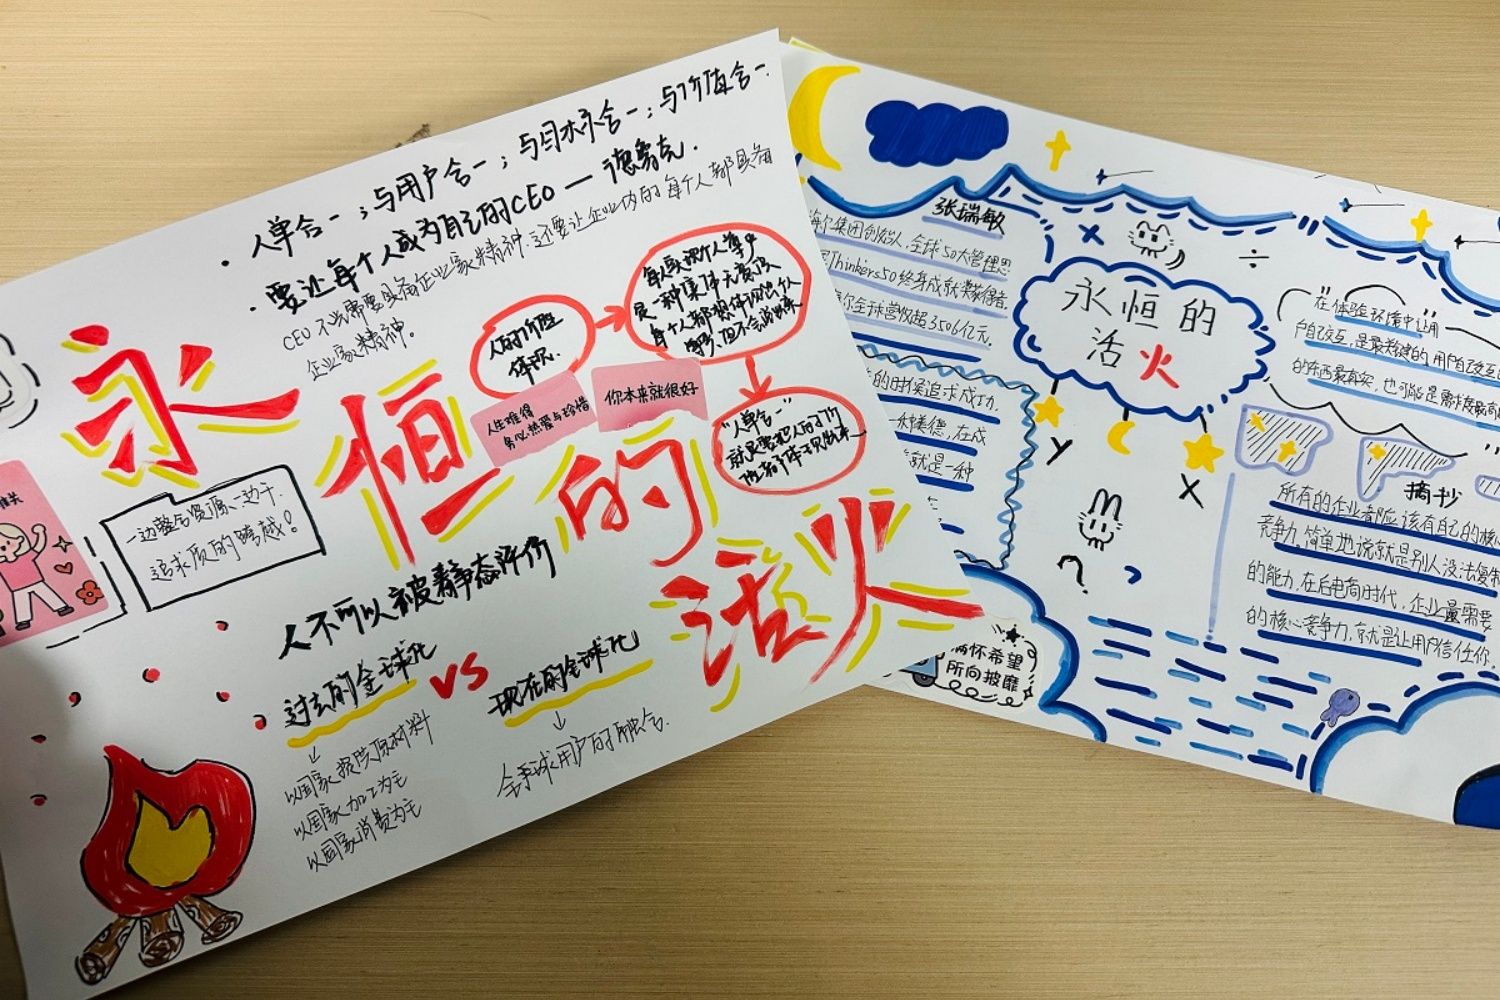 · 人单合一；与用户合一；与目标合一；与价值合一.
· 要让每个人成为自己的CEO — 德鲁克.
CEO不光需要具备企业家精神.还要让企业内的每个人都具备
企业家精神。
永恒的活火
人的价值
体现.
每个人都想体现个人
"人单合一"
就是要把人的价
人生难得
务必热爱与珍惜
你本来就很好
一边整合资源、一边干.
追求质的跨越！
人不可以被静态评价
过去的全球化
VS
现在的全球化
以国家提供原材料
以国家加工为主
以国家消费为主
全球用户的融合.
张瑞敏
海尔集团创始人,全球50大管理思
Thinkers50终身成就奖获得者.
尔全球营收超3506亿元.
的时候追求成功,
一种美德,在成
就是一种
永恒的
活火
÷
X
Y
X
?
在体验环境中让用
户自己交互,是最关键的,用户自己交互
的东西最真实,也可能是需求度最高
摘抄
所有的企业都应该有自己的核心
竞争力,简单地说就是别人没法复制
的能力,在后电商时代,企业最需要
的核心竞争力,就是让用户信任你.
满怀希望
所向披靡